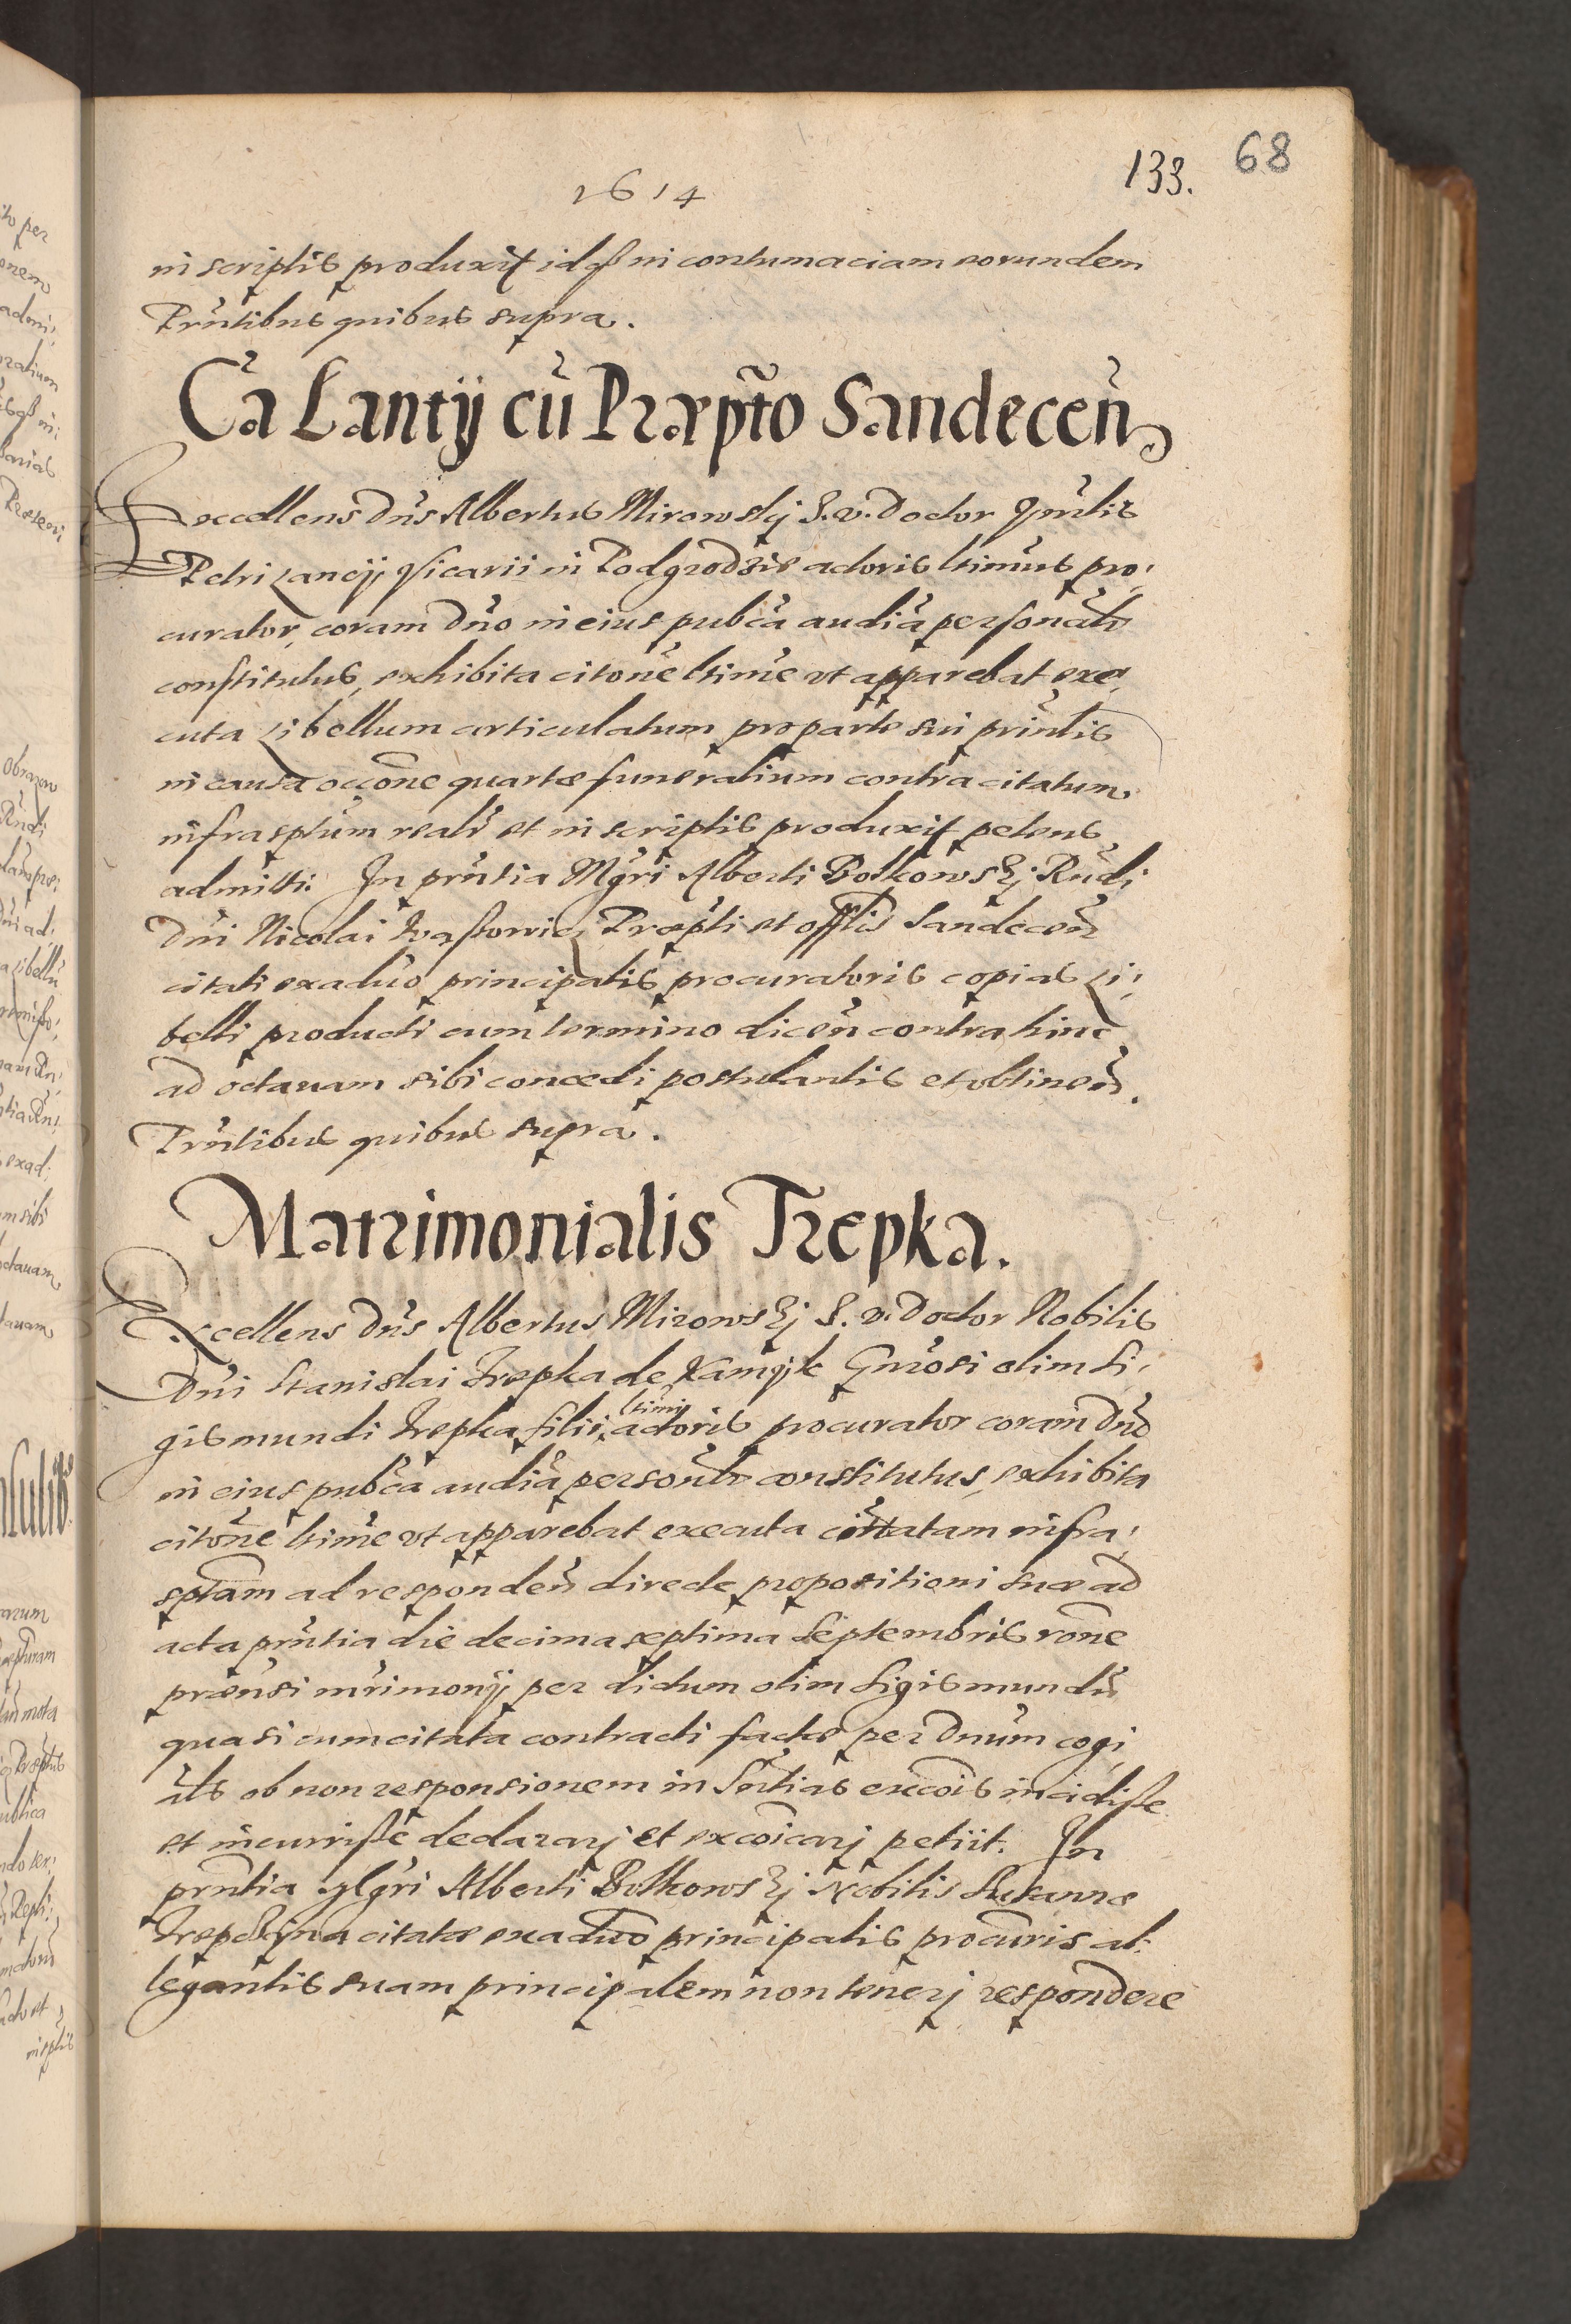 1614
133. 68
in scriptis produxit idqß in contumaciam eorundem
Prñtibus quibus supra.
Cã Lantij cũ Præpto Sandeceñ
Excellens Dñs Albertus Mirowskj I. v. Doctor Hñrlis
Petri Lancij Vicarii in Podgrodzie actoris ltimus pro,
curator, coram Dño in eius pubca audia personalr
constitutus, exhibita citone ltime vt apparebat exe,
cuta Libellum articulatum pro parte sui prinlis
in causa occone quartæ funeralium contra citatum
infrasptum realr et in scriptis produxit petens
admitti. In prñtia Mgri Alberti Bolkowskj Rndi
Dñi Nicolai Præpti et offlis Sandeceñ
citati ex aduo principalis procuratoris copias Li,
belli producti cum termino diceñ contra hinc
ad octauam sibi concedi postulantis et obtineñ.
Prñtibus quibus supra.
Matrimonialis Trepka.
Excellens Dñs Albertus Mirowskj I. v. Doctor Nobilis
Dñi Stanislai Trepka de Kamyk Gnrosi olim Si,
gismundi Trepka filii ltimi actoris procurator coram Dño
in eius pubca audia personlr constitutus, exhibita
citone ltime vt apparebat executa citatam infra,
sptam ad respondeñ directe propositioni suæ ad
acta prñtia die decima septima Septembris rone
prænsi mrimonij per dictum olim Sigismundũ
quasi cum citata contracti factæ per Dnum cogi
als ob non responsionem in Sntias excois incidisse
et incurrisse declararj et excoicarj petiit. In
prñtia Mgri Alberti Bolkowskj Nobilis Susannæ
Trepczyna citatæ ex aduo principalis procuris al,
legantis suam principalem non tenerj respondere